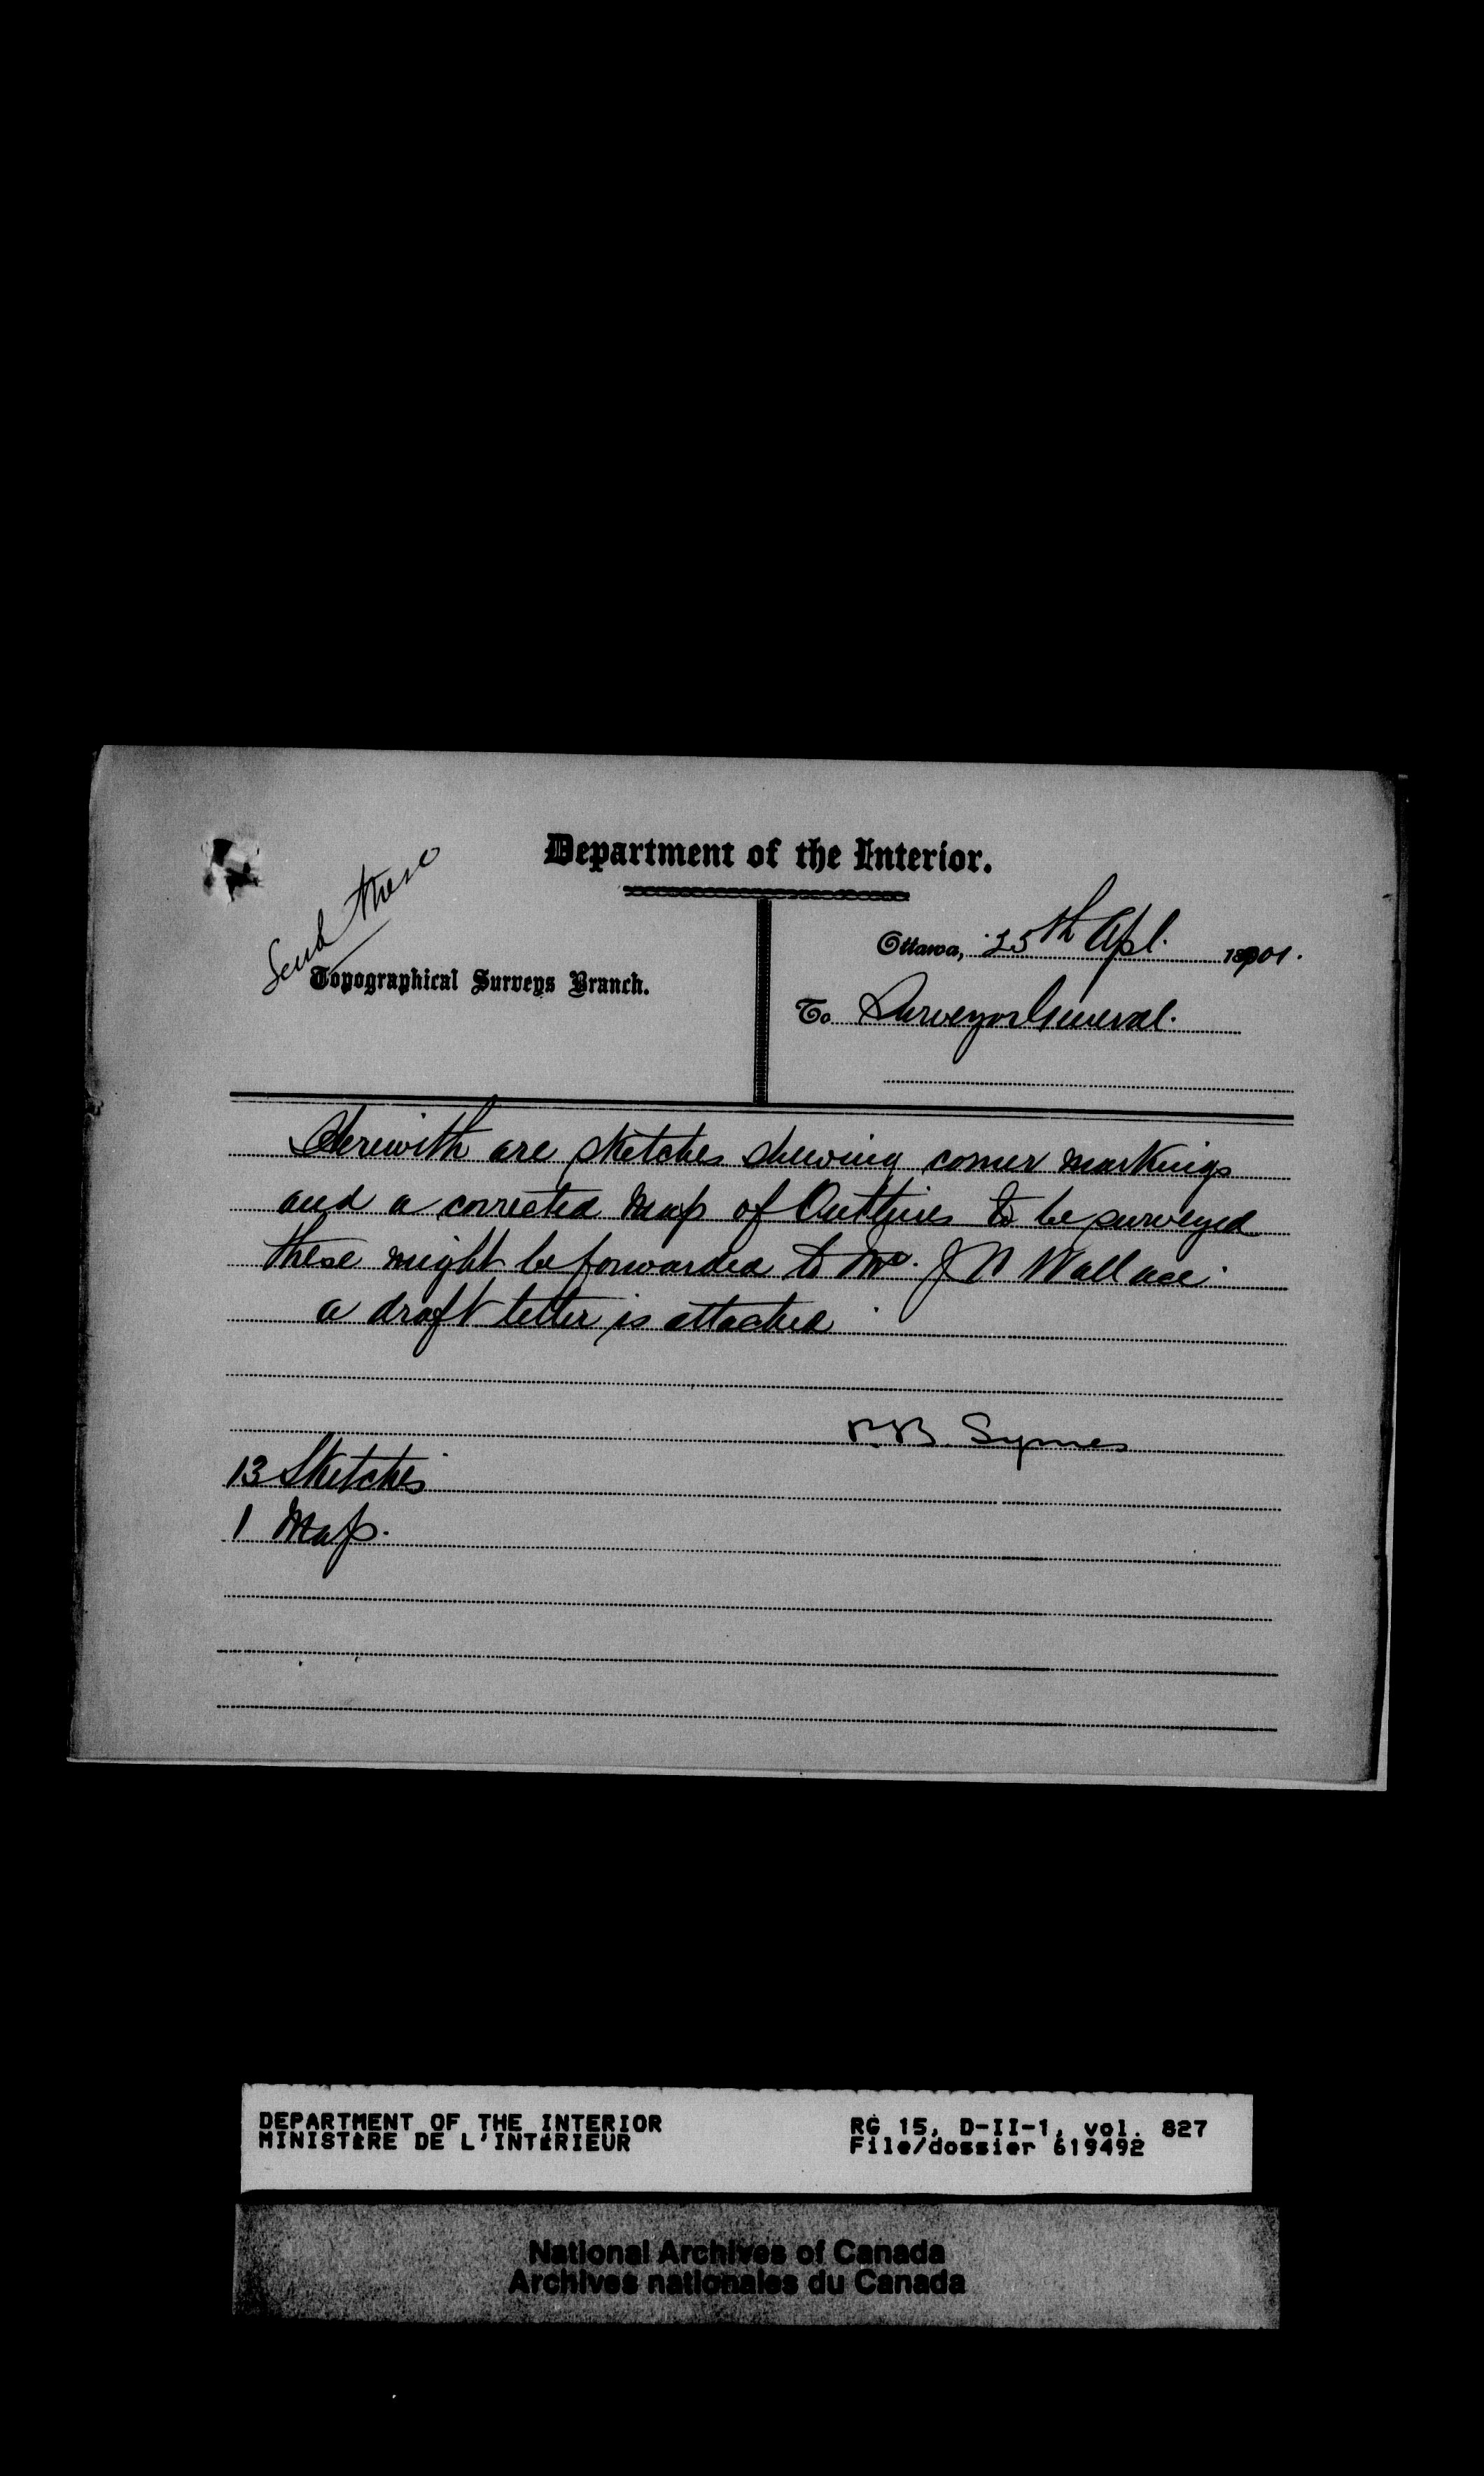 Department of the Interior.
Send these
Topographical Surveys Branch.
Ottawa, 25th Apl. 1901.
To Surveyor General.
Herewith are sketches shewing corner markings
and a corrected map of Outlines to be surveyed
these might be forwarded to Mr. J N Wallace.
a draft letter is attached
P.B. Symes
13 Sketches
1 Map.
DEPARTMENT OF THE INTERIOR
MINISTÈRE DE L'INTÉRIEUR
RG 15, D-II-1, vol. 827
File/dossier 619492
National Archives of Canada
Archives nationales du Canada